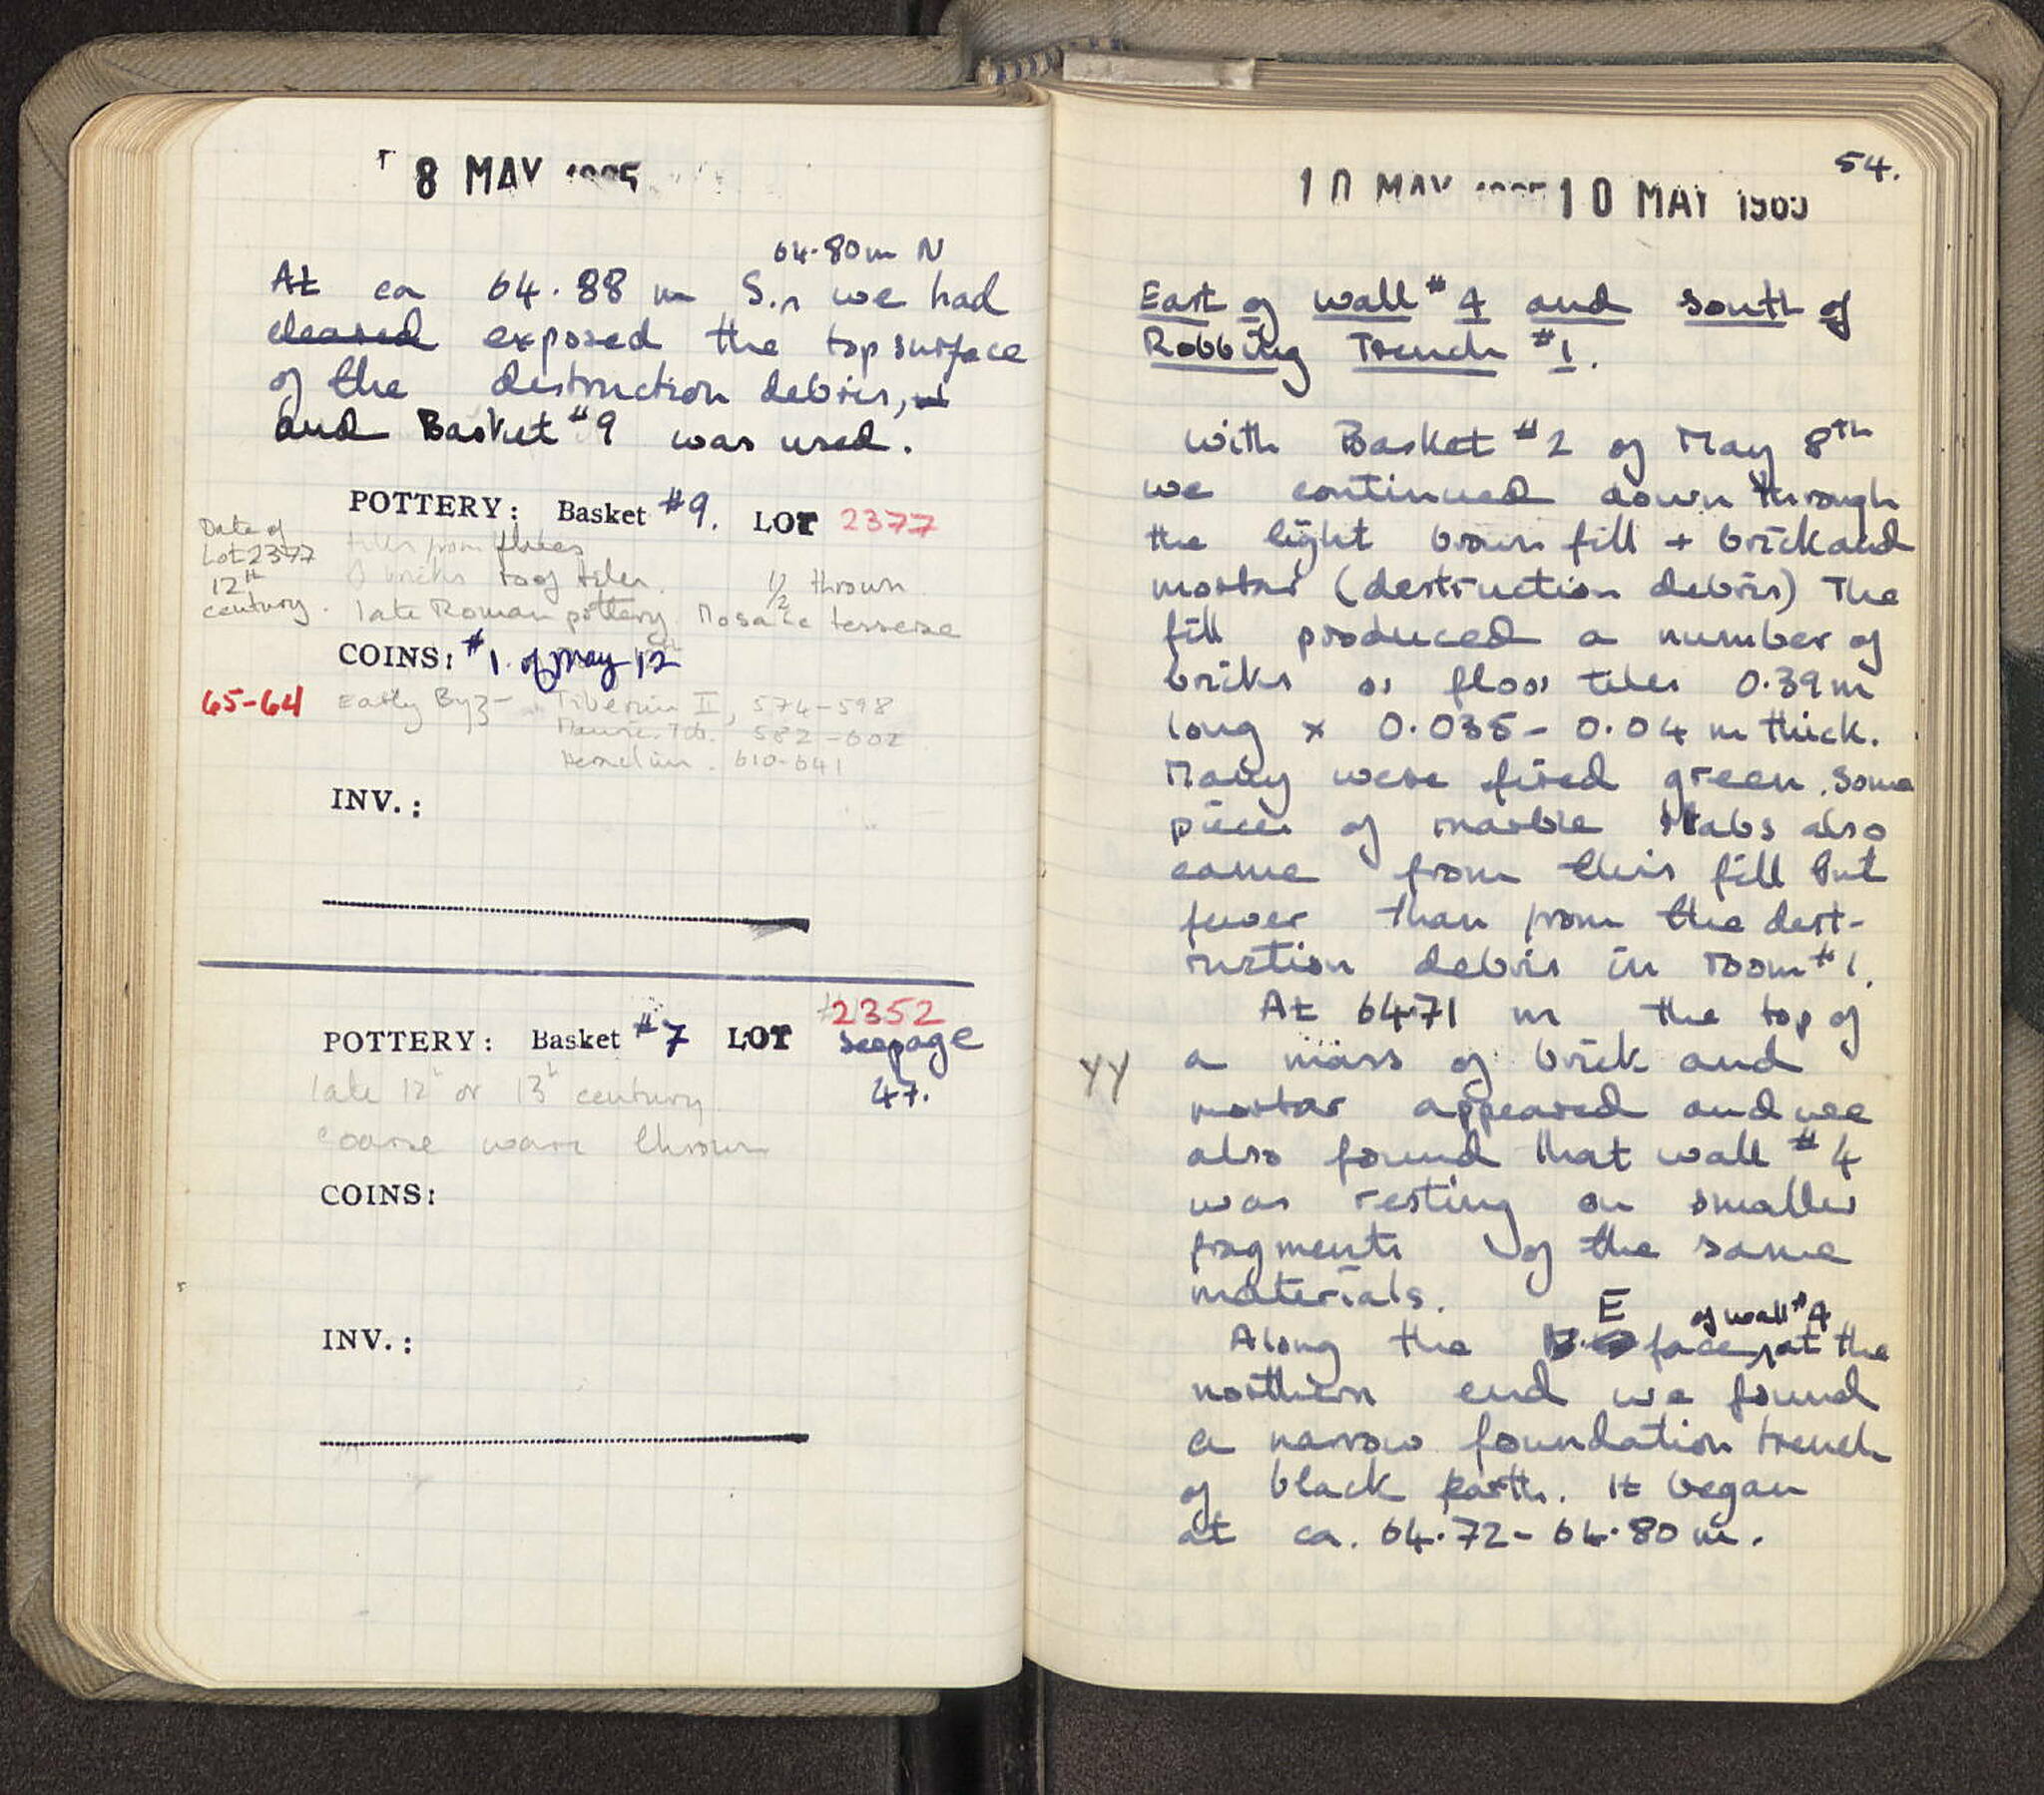 8 MAY
64.80m N
At ca 64.88 m S., we had
cleared exposed the top surface
of the destruction debris,
and Basket #9 was used.
POTTERY: Basket #9. LOT 2377
Date of
Lot 2377
12th
century.
tiles from flues
bricks roof tiles. 1/2 thrown
late Roman pottery. Mosaic tesserae
COINS: #1. of May 12
65-64
Early Byz- Tiberius II, 574-598
582-602
Heraclius. 610-641
INV.:
POTTERY: Basket #7 LOT 2352
see page
47.
late 12th or 13th century
coarse ware thrown
COINS:
INV.:
54.
10 MAY 10 MAY
East of wall #4 and south of
Robbing Trench #1.
With Basket #2 of May 8th
we continued down through
the light brown fill + brick and
mortar (destruction debris) The
fill produced a number of
bricks or floor tiles 0.39m
long x 0.035-0.04 m thick.
Many were fired green. Some
pieces of marble slabs also
came from this fill but
fewer than from the dest-
ruction debris in room #1.
At 64.71 m the top of
YY
a mass of brick and
mortar appeared and we
also found that wall #4
was resting on smaller
fragments of the same
materials.
E of wall #4
Along the face, at the
northern end we found
a narrow foundation trench
of black earth. It began
at ca. 64.72-64.80 m.